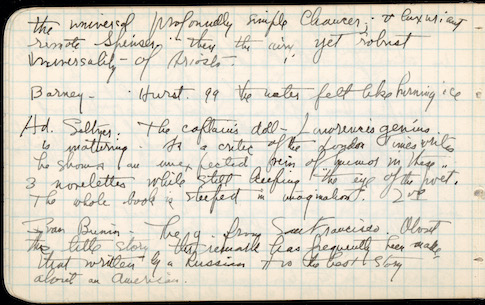 the universal profoundly simple Chaucer; & luxuriant
remote Spenser then the airy yet robust
universality of Ariosto.
Barney - Hurst. 99 the water felt like burning ice
Ad. Seltzer: The captain's doll - Lawrence's genius
is mattering. As a critic of the London Times writes
he shows an unexpected vein of humor in these
3 novelettes while still keeping "the eye of the poet."
The whole book is steeped in imagination.
Ivan Bunin - The g. from San Francisco. About
this title story the remark has frequently been made
that written by a Russian it is the best story
about an American.